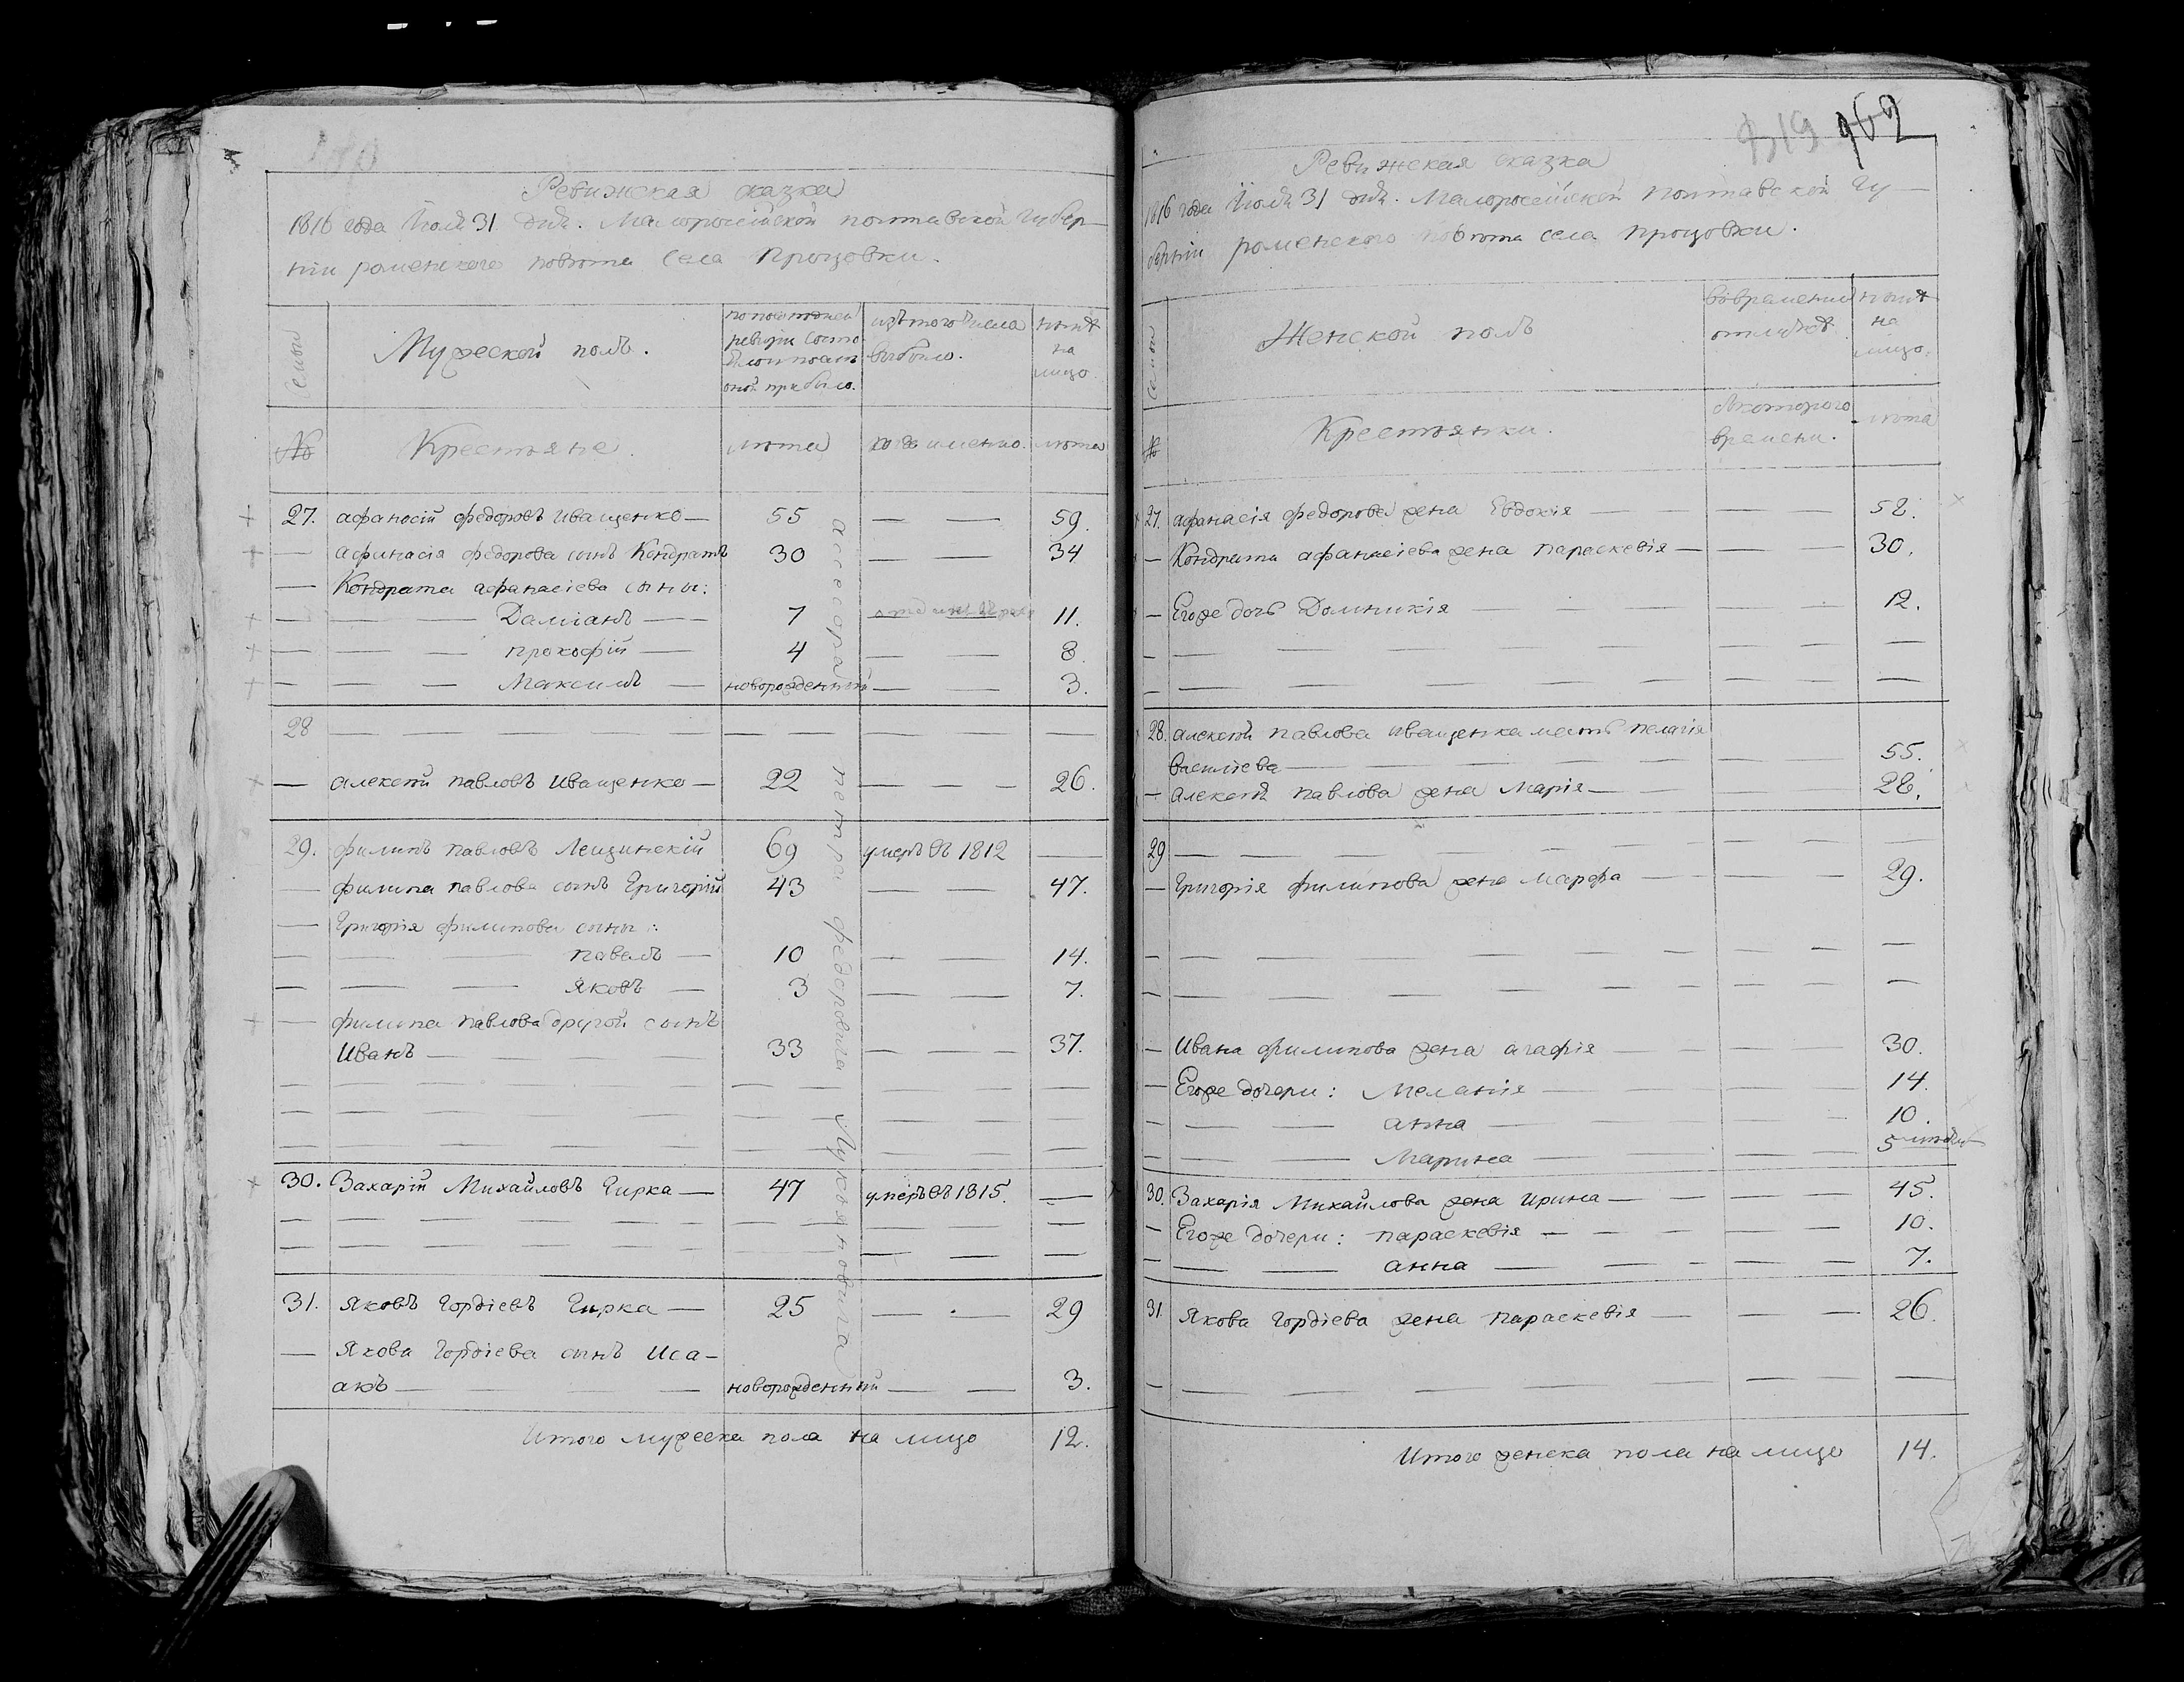 Ревижская сказка
1816 года Июля 31 дня. Малороссійской полтавской губер-
ніи роменского повѣта села Процовки.
семьи
Мужеской полъ.
по последней
ревизіи состо
яло и после
оной прибыло.
изъ того числа
выбыло.
ныне
на
лицо.
№
Крестьяне.
лѣта
когда именно.
лѣта
27. афанасій федоровъ иващенко — 55 — — 59.
— афанасія федорова сынъ Кондратъ 30 — — 34
— Кондрата афанасіева сыны:
— — — Даміанъ — — 7 11.
— — — прокофій — 4 — — 8.
— — — Максимъ — новорожденный — — 3.
28 — — — — —
— алексѣй павловъ иващенко — 22 — — — 26.
29. филипъ павловъ Лещинскій 69 умеръ въ 1812 —
— филипа павлова сынъ Григорій 43 — — 47.
— Григорія филипова сыны:
— — — павелъ — 10 — — 14.
— — — яковъ — 3 — — 7.
— филипа павлова другой сынъ
Иванъ — 33 — — — 37.
30. Захарій Михайловъ Гирка — 47 умеръ въ 1815. —
31. яковъ гордіевъ Гирка — 25 — — 29
— якова гордіева сынъ Иса-
акъ — новорожденный — — 3.
Итого мужеска пола на лицо 12.
ассесора петра федоровича Лукьяновича
319 962
Ревижская сказка
1816 года Июля 31 дня. Малоросейской полтавской гу-
берніи роменского повѣта села процовки.
семьи
Женской полъ
во временной
отлучкѣ.
ныне
на
лицо.
№
Крестьянки.
с котораго
времени.
лѣта
27. афанасія федорова жена Евдокія — — — 58.
— Кондрата афанасіева жена параскевія — — — 30.
— Егоже дочь Домникія — — — 12.
28. алексѣя павлова иващенка мать пелагія
василіева — — — 55.
— алексѣя павлова жена Марія — — 28.
29 — — — — —
— Григорія филипова жена марфа — — — 29.
— Ивана филипова жена агафія — — — 30.
— Егоже дочери: меланія — — 14.
— — — анна — — — 10.
— — — Марина — — — 5
30. Захарія Михайлова жена ирина — — — 45.
— Егоже дочери: параскевія — — — 10.
— — — анна — — — 7.
31 якова гордіева жена параскевія — — — 26.
Итого женска пола на лицо 14.